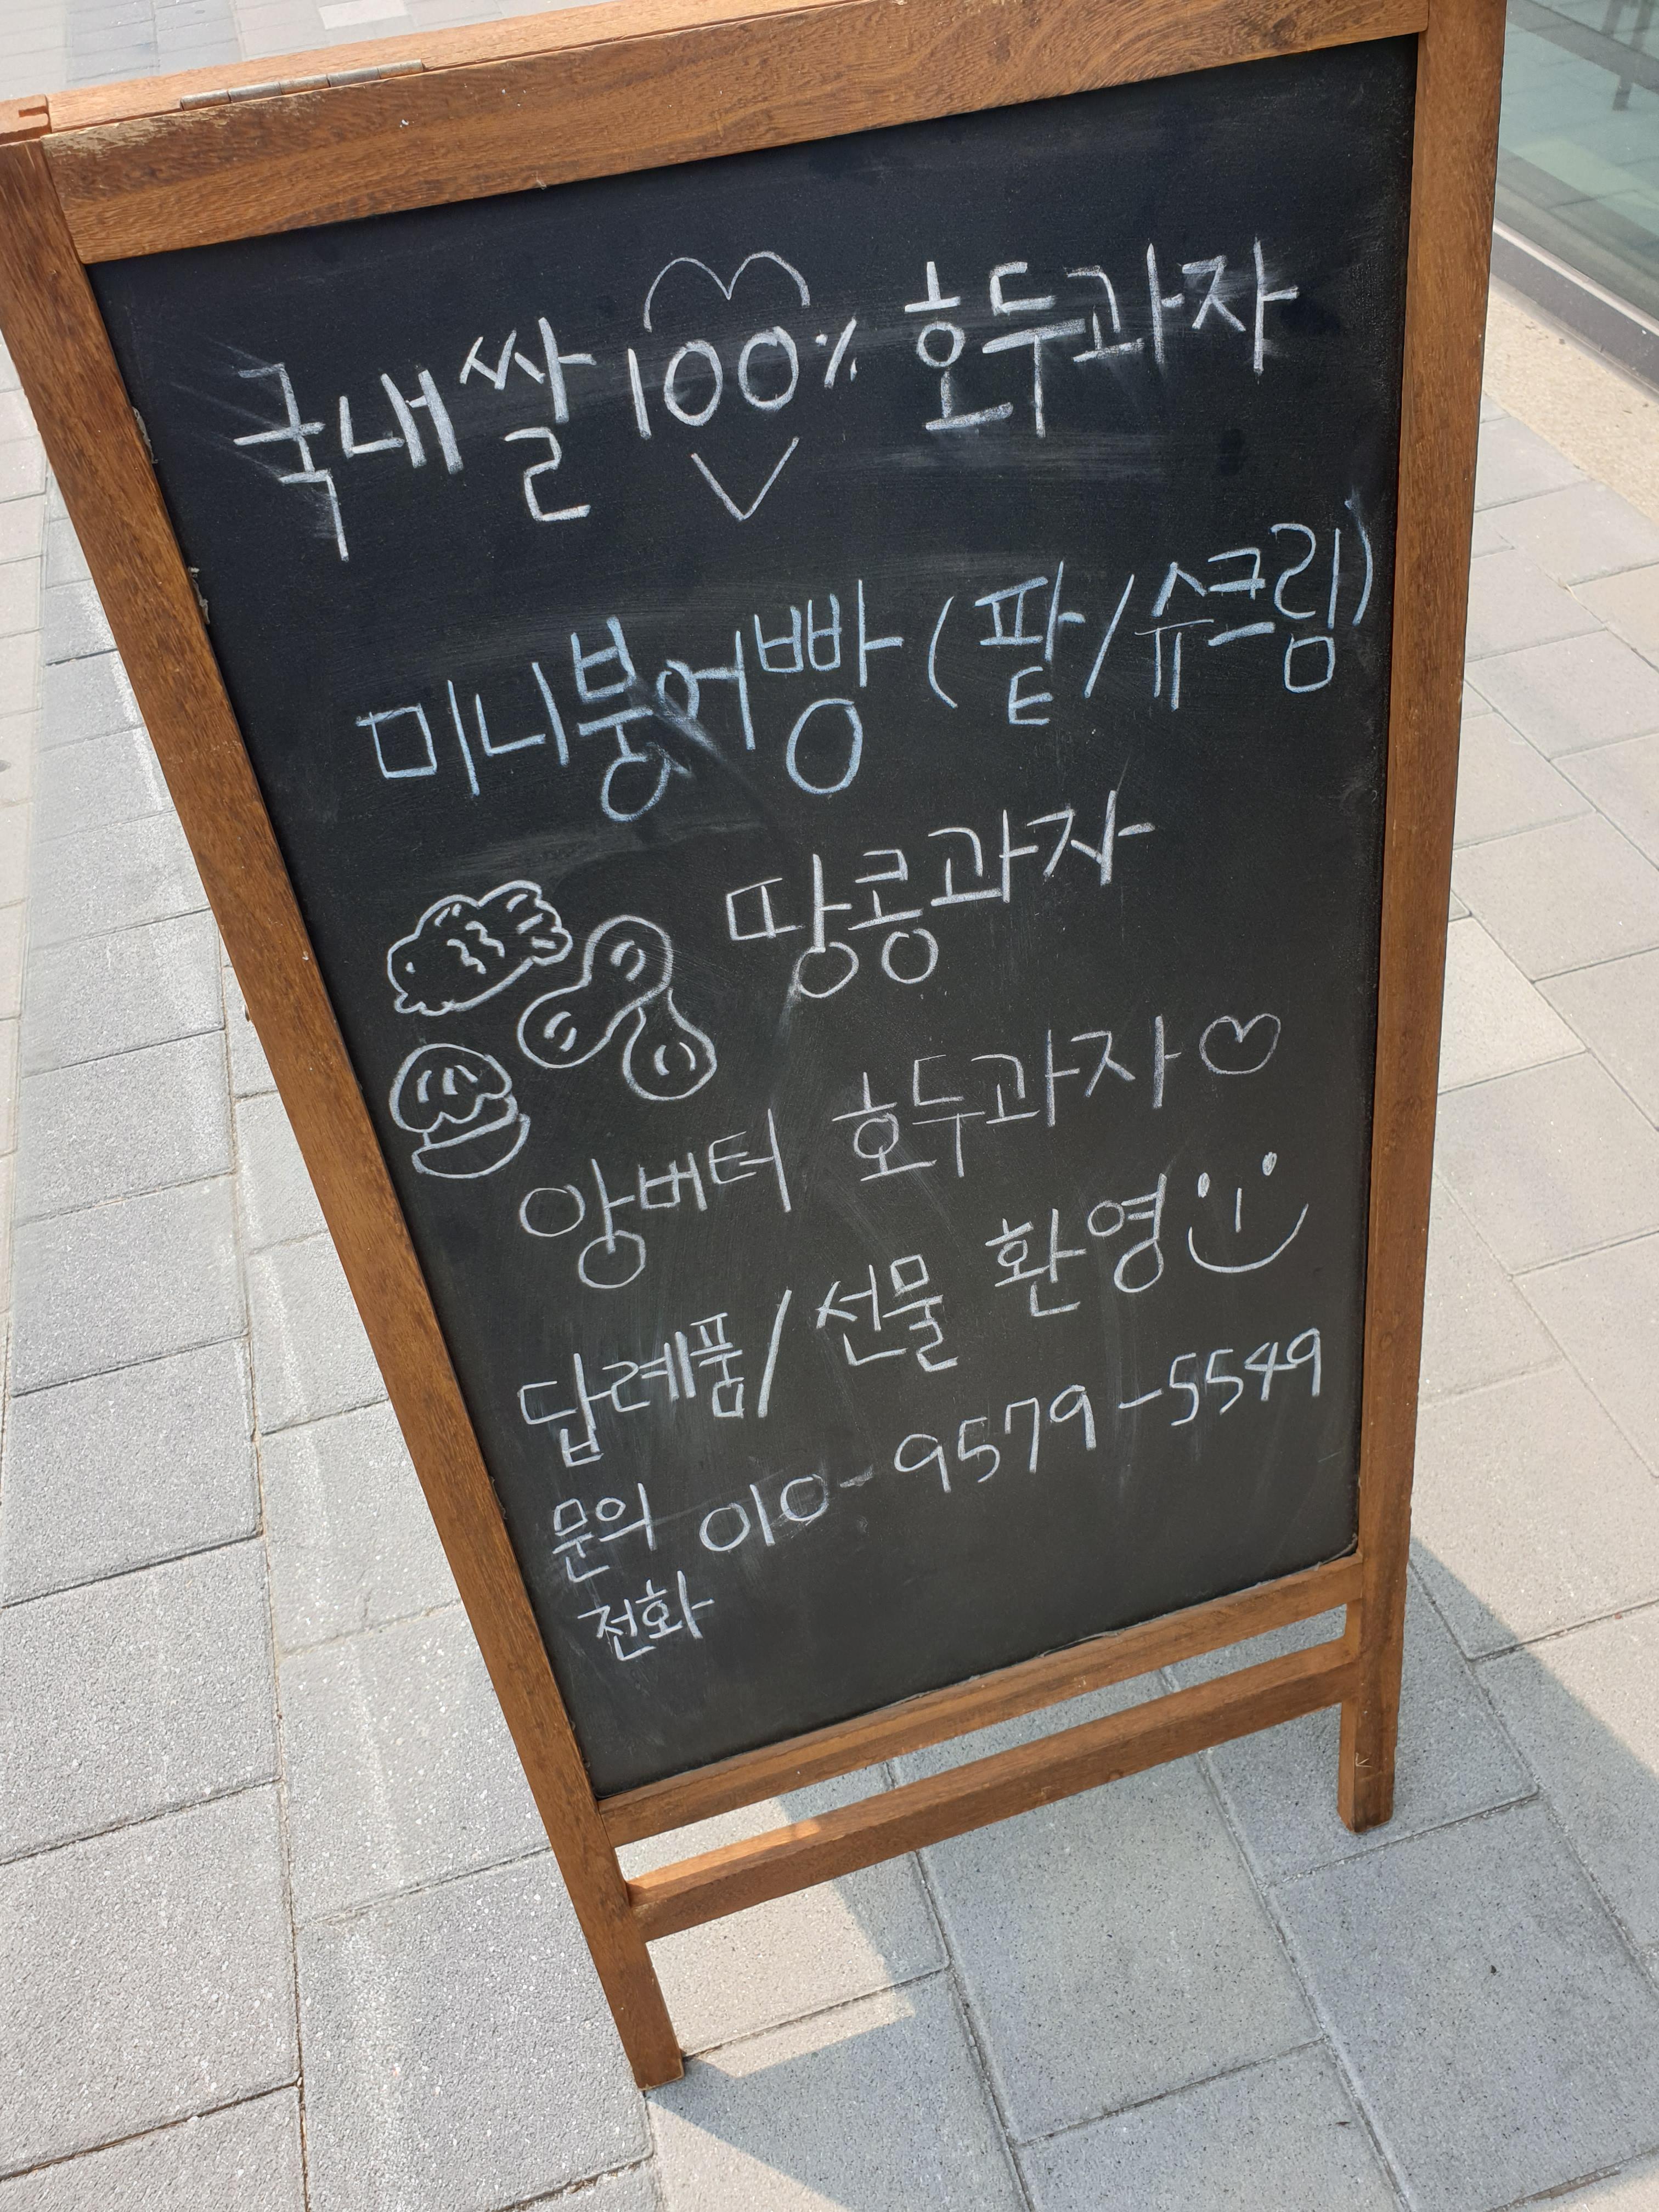 국내쌀 100% 호두과자
미니붕어빵 (팥/슈크림)
땅콩과자
앙버터 호두과자♡
답례품/선물 환영
문의 010-9579-5549
전화